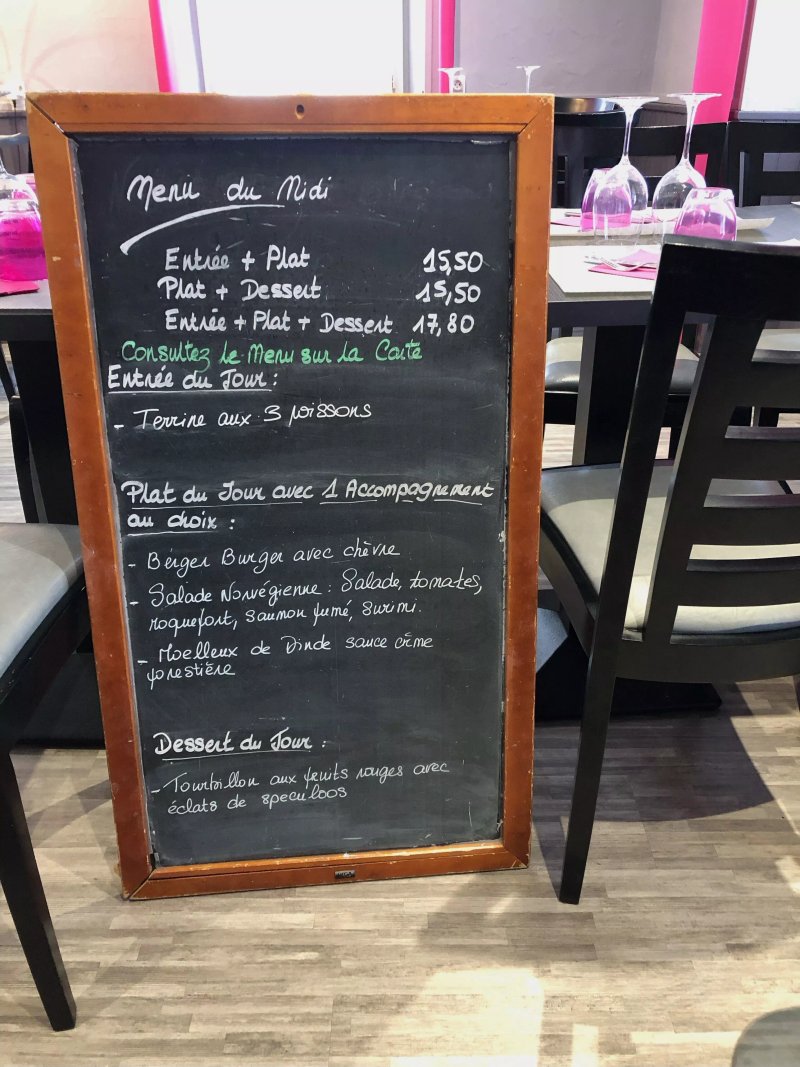 Menu du Midi
Entrée + Plat 15,50
Plat + Dessert 15,50
Entrée + Plat + Dessert 17,80
Consultez le Menu sur la Carte
Entrée du Jour :
- Terrine aux 3 poissons
Plat du Jour avec 1 Accompagnement
au choix :
- Berger Burger avec chèvre
- Salade Norvégienne : Salade, tomates,
roquefort, saumon fumé, surimi.
- Moelleux de Dinde sauce crème
forestière
Dessert du Jour :
- Tourbillon aux fruits rouges avec
éclats de speculoos